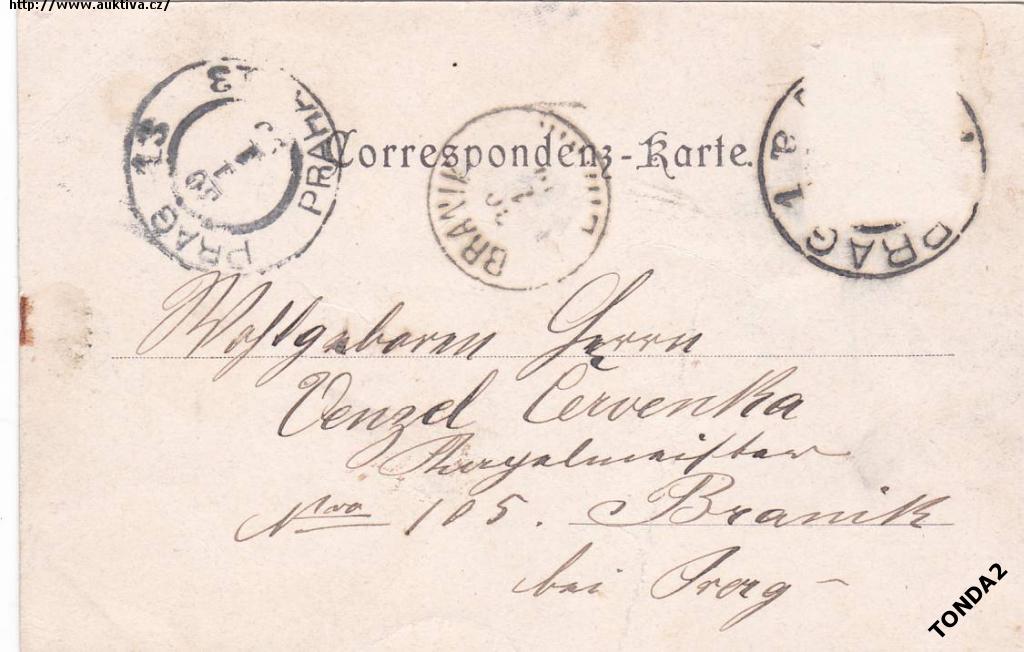 http://www.auktiva.cz/
PRAG 13 PRAHA 13
BRANIK
PRAG 1 a PRAG
Correspondenz-Karte.
Wohlgeboren Herrn
Venzel Červenka
Nro 105. Branik
bei Prag
TONDA2